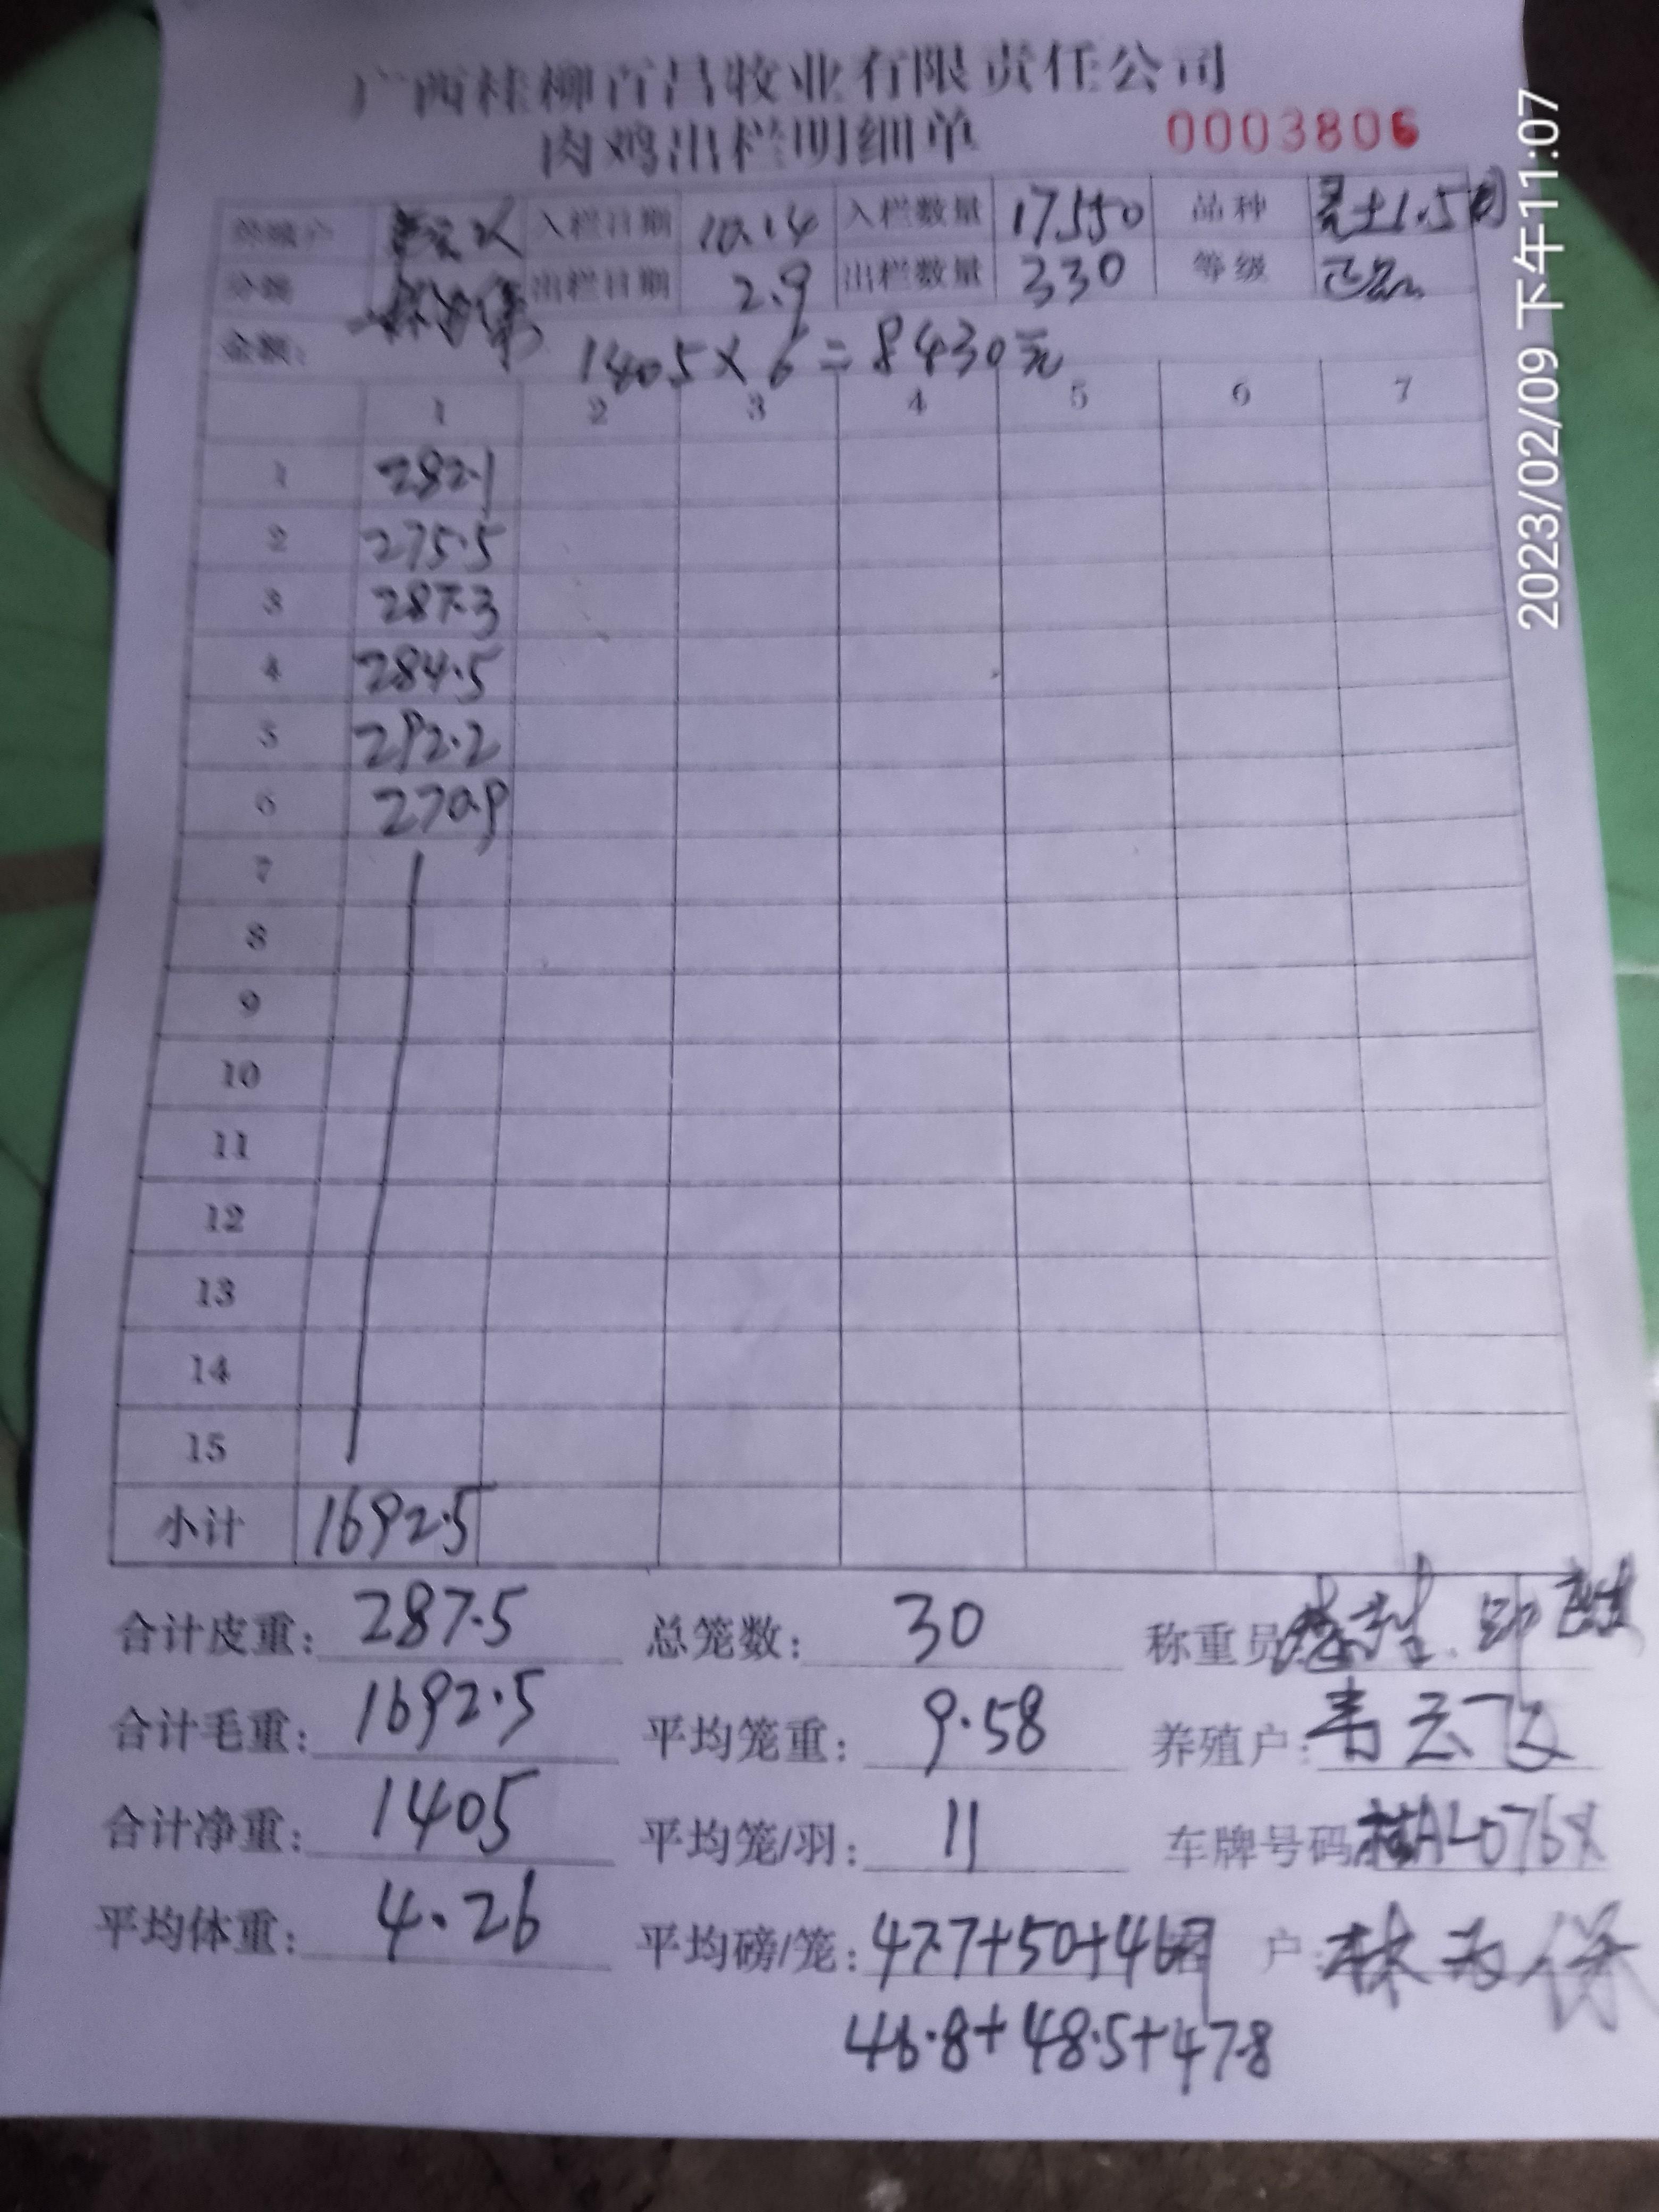 广西桂柳百昌牧业有限责任公司
肉鸡出栏明细单 0003806
养殖户 入栏日期 10.14 入栏数量 17550 品种 土1.5
出栏日期 2.9 出栏数量 330 等级
金额: 1405×6=8430元
1 2 3 4 5 6 7
1 282.1
2 275.5
3 287.3
4 284.5
5 292.2
6 270.9
7
8
9
10
11
12
13
14
15
小计 1692.5
合计皮重: 287.5 总笼数: 30 称重员
合计毛重: 1692.5 平均笼重: 9.58 养殖户: 韦云飞
合计净重: 1405 平均笼/羽: 11 车牌号码
平均体重: 4.26 平均磅/笼: 47.7+50+46.9 户:
46.8+48.5+47.8
2023/02/09 下午11:07